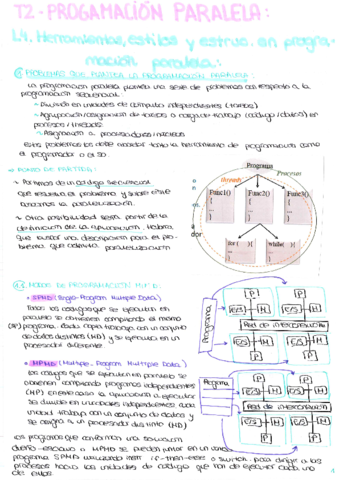 T2 - PROGAMACIÓN PARALELA:
1.4. Herramientas, estilos y estruc. en progra-
mación paralela:
PROBLEMAS QUE PLANTEA LA PROGRAMACIÓN PARALELA:
La programación paralela plantea una serie de problemas con respecto a la
programación secuencial:
División en unidades de cómputo independientes (tareas)
Agrupación/asignación de tareas o carga de trabajo (código/datos) en
procesos/threads
Asignación a procesadores/núcleos
Estos problemas los debe abordar tanto la herramienta de programación como
el programador o el SO
PUNTO DE PARTIDA:
Partimos de un código secuencial
que resuelva el problema y sobre este
buscamos la paralelización
Otra posibilidad sería partir de la
definición de la aplicación, habría
que buscar una descripción para el pro-
blema que admita paralelización
Programa
threads
Procesos
Func1()
{
...
}
Func2()
{
...
}
Func3()
{
...
}
for {
}
while {
}
dor
1.5. MODOS DE PROGRAMACIÓN MIMD:
SPMD: (Single-Program Multiple Data)
Todos los códigos que se ejecutan en
paralelo se obtienen compilando el mismo
(SP) programa. Cada copia trabaja con un conjunto
de datos distintos (MD) y se ejecuta en un
procesador diferente
Programa
P
P
E/S
M
E/S
M
Red de interconexión
E/S
M
E/S
M
P
P
MPMD: (Multiple-Program Multiple Data)
Los códigos que se ejecutan en paralelo se
obtienen compilando programas independientes
(MP) En este caso la aplicación a ejecutar
se divide en unidades independientes. Cada
unidad trabaja con un conjunto de datos y
se asigna a un procesador distinto (MD)
Programa
P
P
E/S
M
E/S
M
Red de interconexión
E/S
M
E/S
M
P
P
Los programas que conforman una solución
dueño-esclavo o MPMD se pueden juntar en un único
programa SPMD utilizando inst if-then-else o switch para dirigir a los
procesos hacia las unidades de código que han de ejecutar cada uno
de ellos.